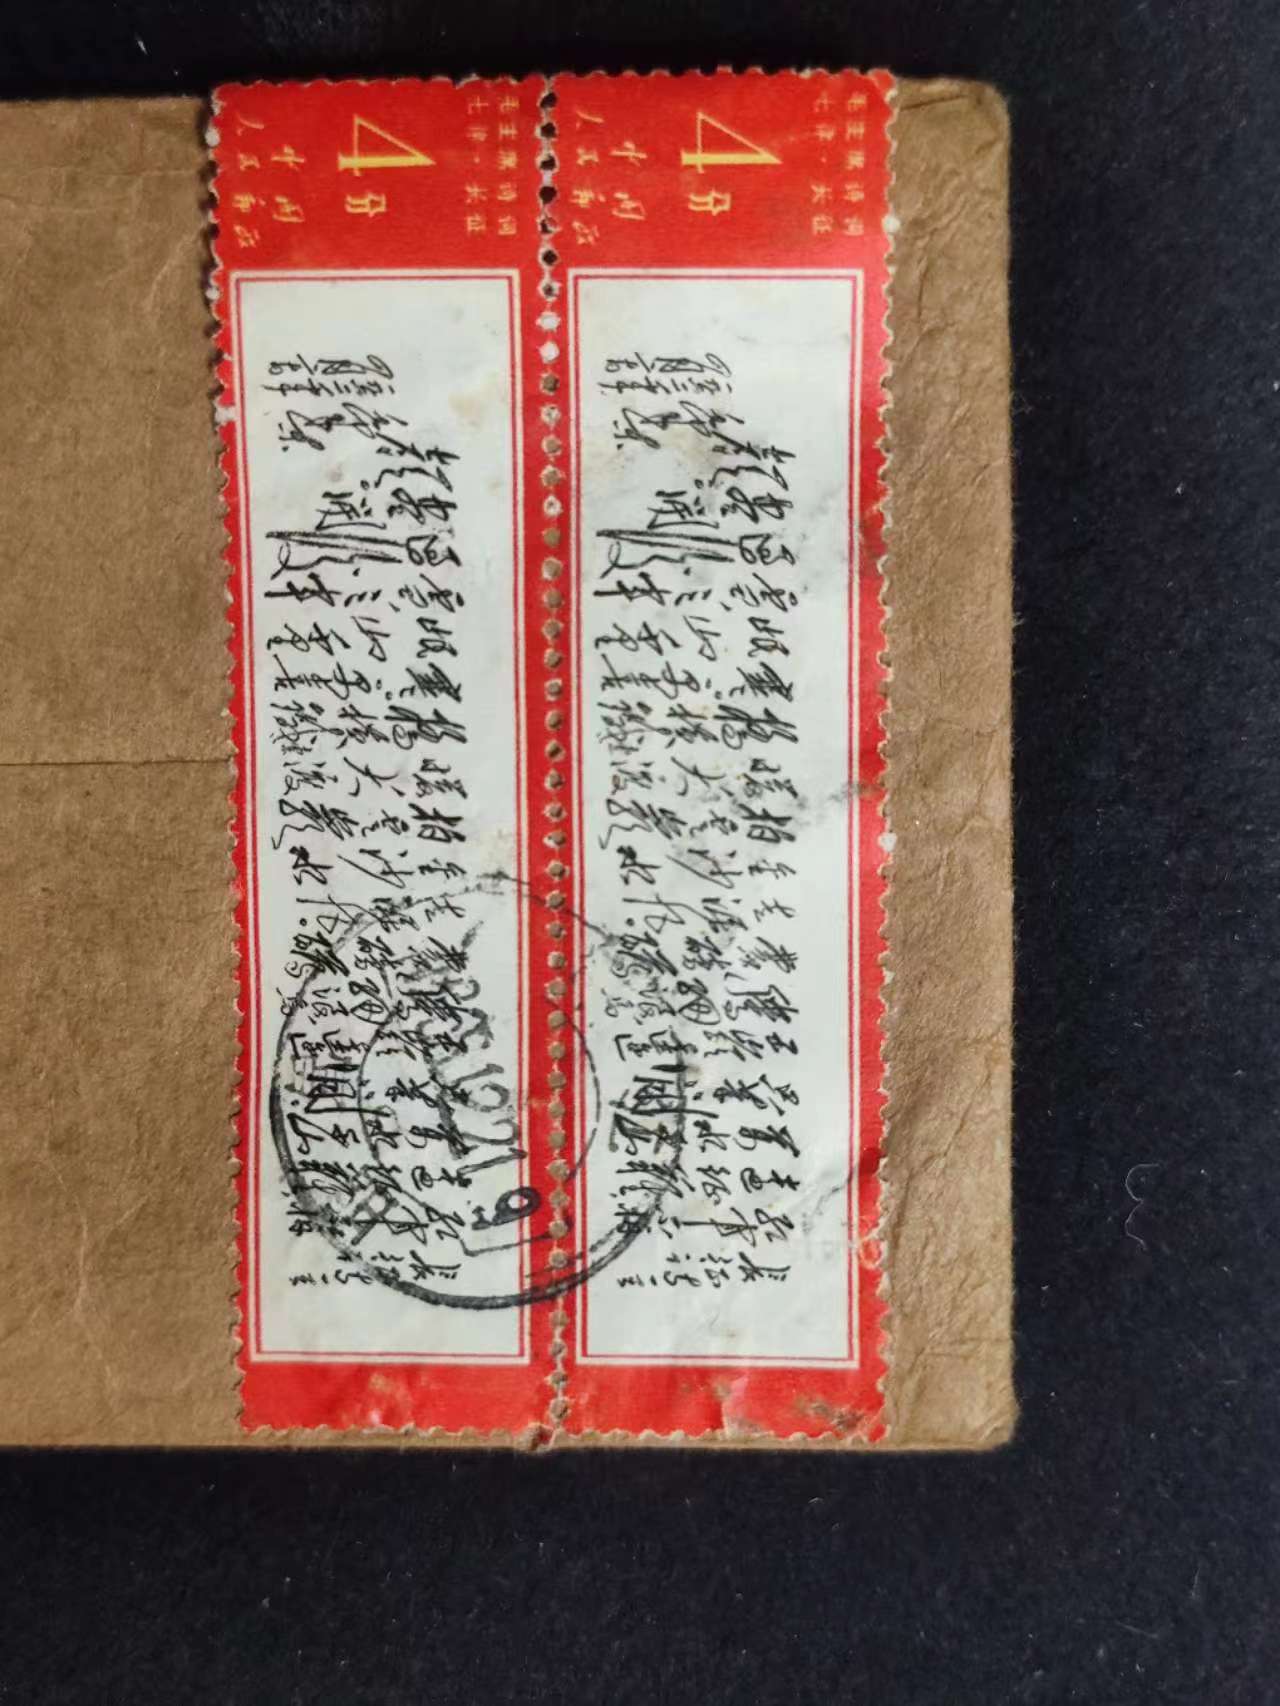 毛主席诗词
七律·长征
4分
中国
人民邮政
长征诗一首
红军不怕
远征难
万水千山
只等闲
五岭逶迤
腾细浪
乌蒙磅礴
走泥丸
金沙水
拍云崖
暖大渡
桥横铁索
寒更喜
岷山千里
雪三军
过后尽
开颜
毛泽东
毛主席诗词
七律·长征
4分
中国
人民邮政
长征诗一首
红军不怕
远征难
万水千山
只等闲
五岭逶迤
腾细浪
乌蒙磅礴
走泥丸
金沙水
拍云崖
暖大渡
桥横铁索
寒更喜
岷山千里
雪三军
过后尽
开颜
毛泽东